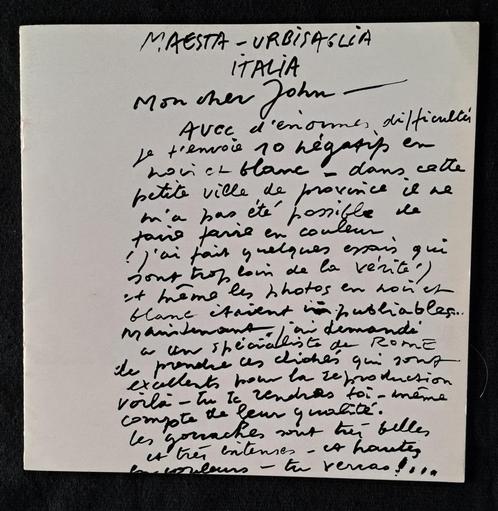 MAESTA - URBISAGLIA
ITALIA
Mon cher John -
AVEC d'énormes difficultés
je t'envoie 10 négatifs en
noir et blanc - dans cette
petite ville de province il ne
m'a pas été possible de
faire faire en couleur
(j'ai fait quelques essais qui
sont trop loin de la vérité!)
et même les photos en noir et
blanc étaient impubliables..
maintenant j'ai demandé
a un spécialiste de ROME
de prendre ces clichés qui sont
excellents pour la reproduction
voilà - tu te rendras toi-même
compte de leur qualité.
les gouaches sont très belles
et très intenses - et hautes
en couleurs - tu verras!...